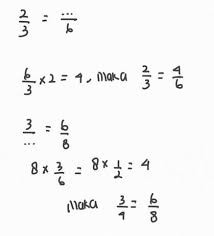 2/3 = .../6
6/3 × 2 = 4, maka 2/3 = 4/6
3/... = 6/8
8 × 3/6 = 8 × 1/2 = 4
Maka 3/4 = 6/8